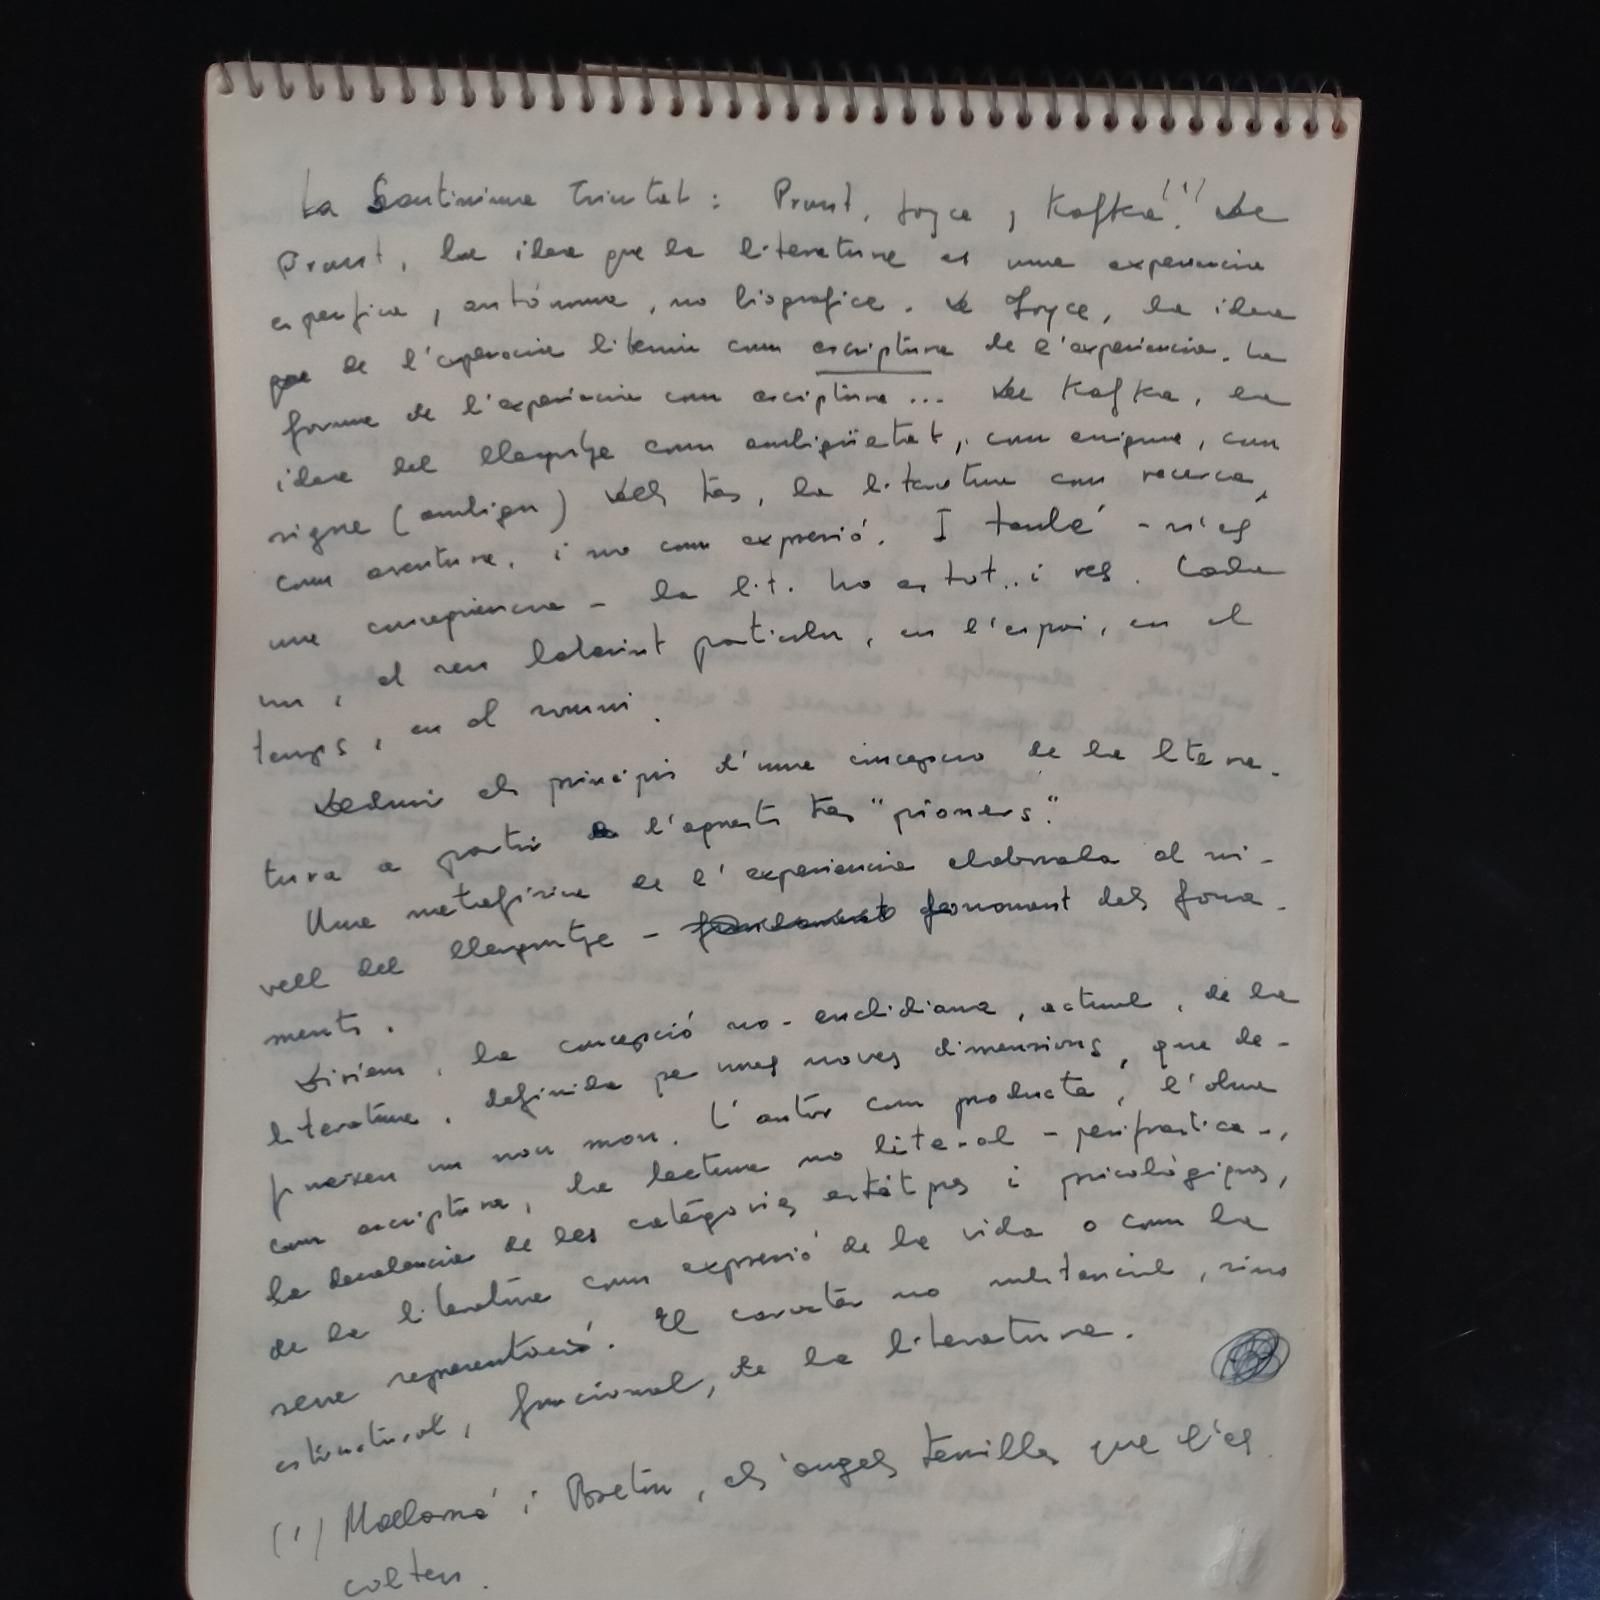 La Santíssima Trinitat: Proust, Joyce, Kafka (1). De
Proust, la idea que la literatura es una experiencia
especifica, autónoma, no biografica. De Joyce, la idea
que de l'experiencia literaria com escriptura de l'experiencia. La
forma de l'experiencia com escriptura... De Kafka, la
idea del llenguatge com ambigüetat, com enigma, com
signe (ambigu) Dels tres, la literatura com recerca,
com aventura, i no com expresió. I també - n'es
una consequencia - la lit. ho es tot.. i res. Cada
un, el seu laberint particular, en l'espai, en el
temps, en el somni.
Deduir els principis d'una concepcio de la litera-
tura a partir de l'aport tres "pioners".
Una metafisica de l'experiencia elaborada al ni-
vell del llenguatge - fonament dels fona-
ments.
Diriem, la concepció no-euclidiana, actual, de la
literatura, definida per unes noves dimensions, que de-
fineixen un nou mon. L'autor com producte, l'obra
com escriptura, la lectura no literal - perifrastica -,
la decadencia de les categories estétiques i psicològiques,
de la literatura com expresió de la vida o com la
seva representació. El caracter no substancial, sino
estructural, funcional, de la literatura.
(1) Mallarmé i Breton, els àngels terribles que l'es
colten.